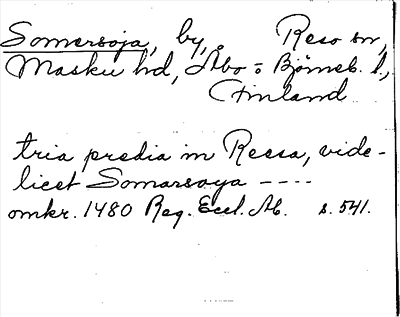 Somersoja, by, Reso sn,
Masku hd, Åbo - o Björneb. l.,
Finland
tria predia in Reesa, vide-
licet Somarsoya ----
omkr. 1480 Reg. Eccl. Ab. s. 541.